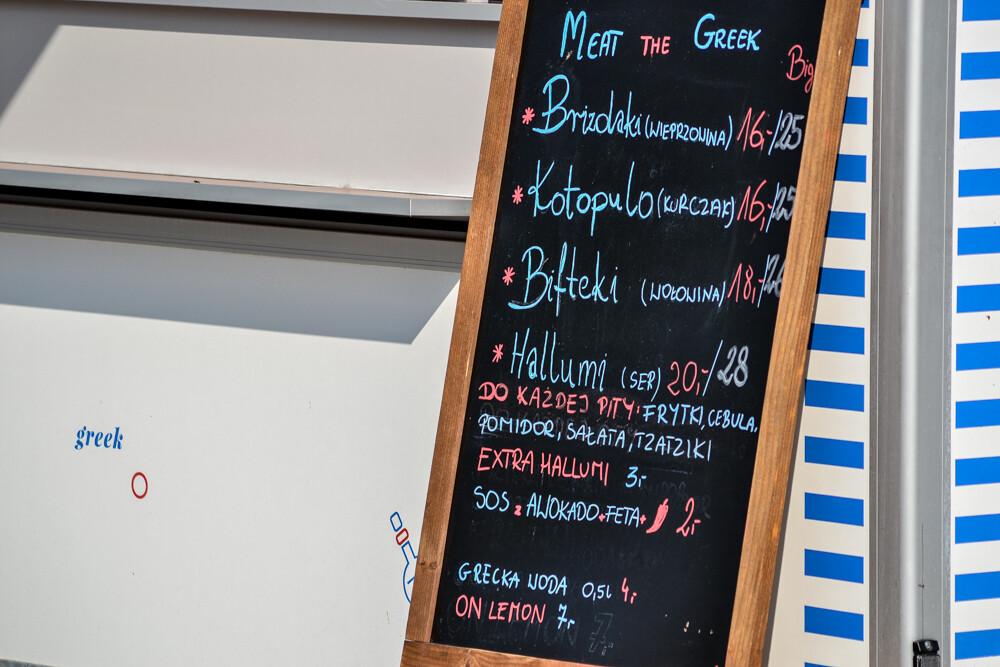 MEAT THE GREEK
Big
* Brizolaki (WIEPRZOWINA) 16,-/25
* Kotopulo (KURCZAK) 16,-/25
* Bifteki (WOŁOWINA) 18,-/28
* Hallumi (SER) 20,-/28
DO KAŻDEJ PITY: FRYTKI, CEBULA,
POMIDOR, SAŁATA, TZATZIKI
EXTRA HALLUMI 3,-
SOS z AWOKADO+FETA+ 2,-
GRECKA WODA 0,5L 4,-
ON LEMON 7,-
greek